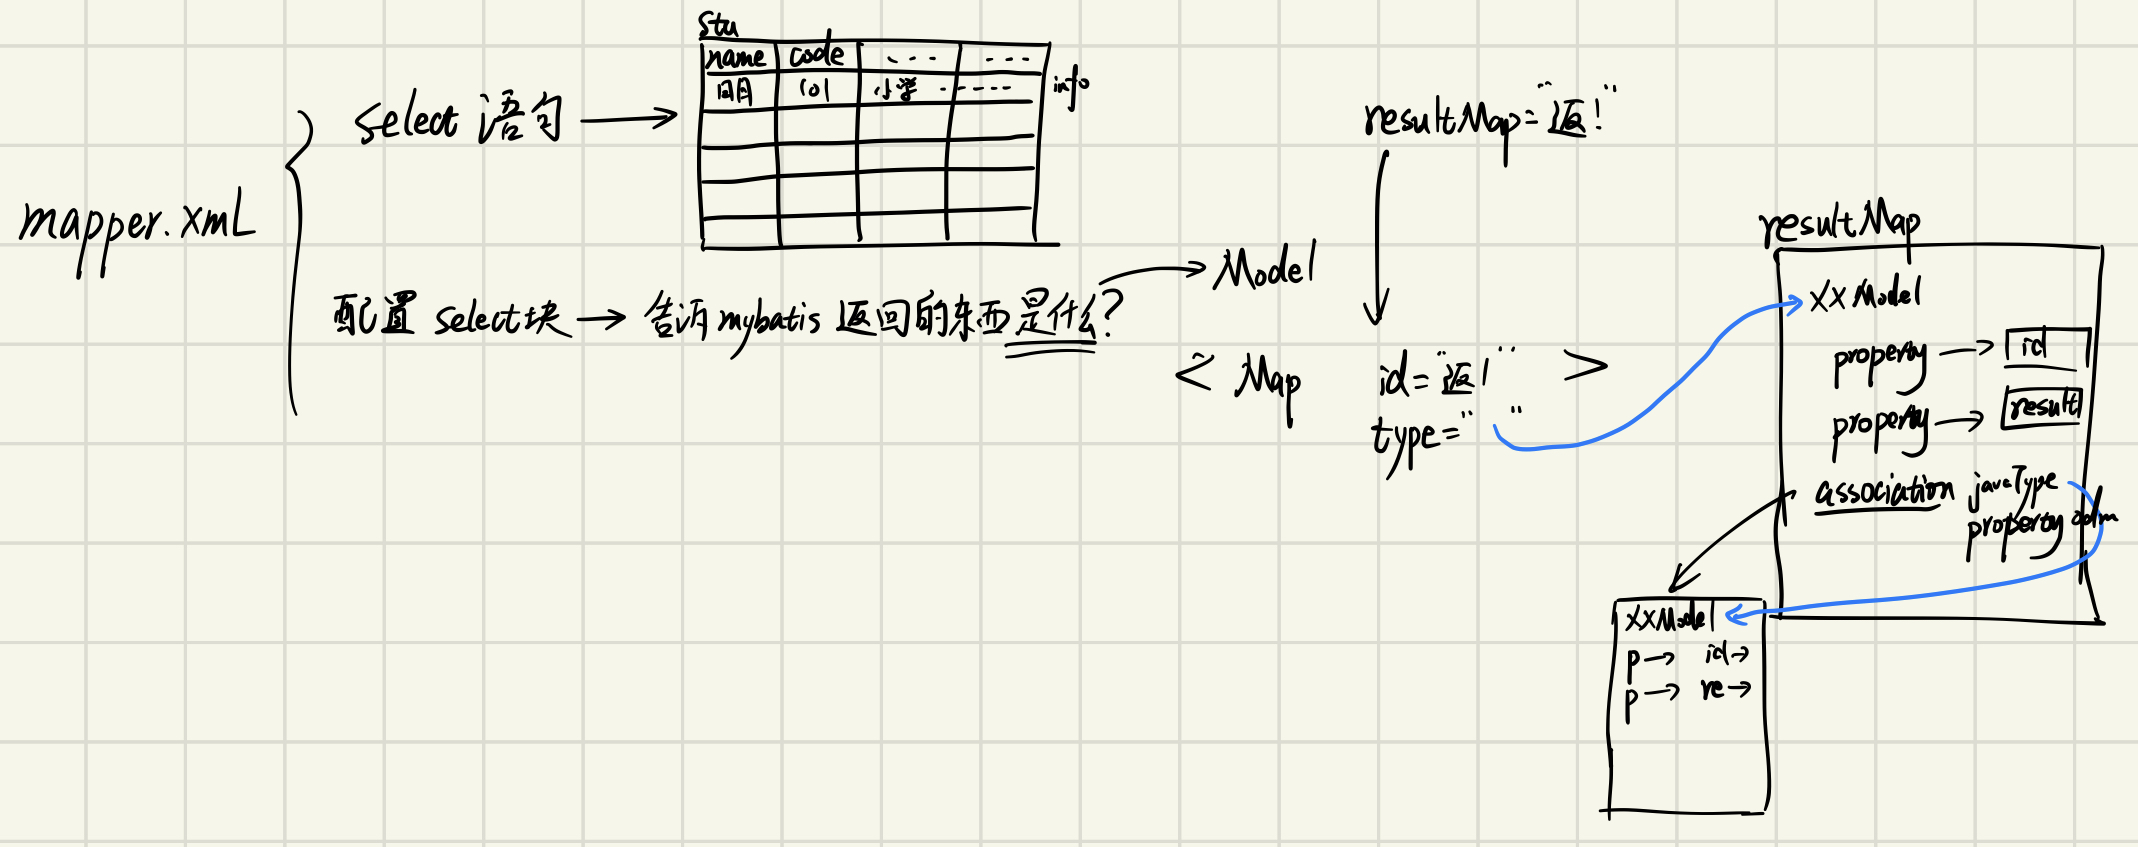 stu
name code ---- ----
明明 101 小学 -----
info
select 语句
mapper.xmL
配置 select块 → 告诉mybatis 返回的东西是什么?
Model
resultMap="返!"
< Map id="返!" >
type=" "
resultMap
XX Model
property → id
property → result
association javaType
property
XXModel
p → id →
p → re →